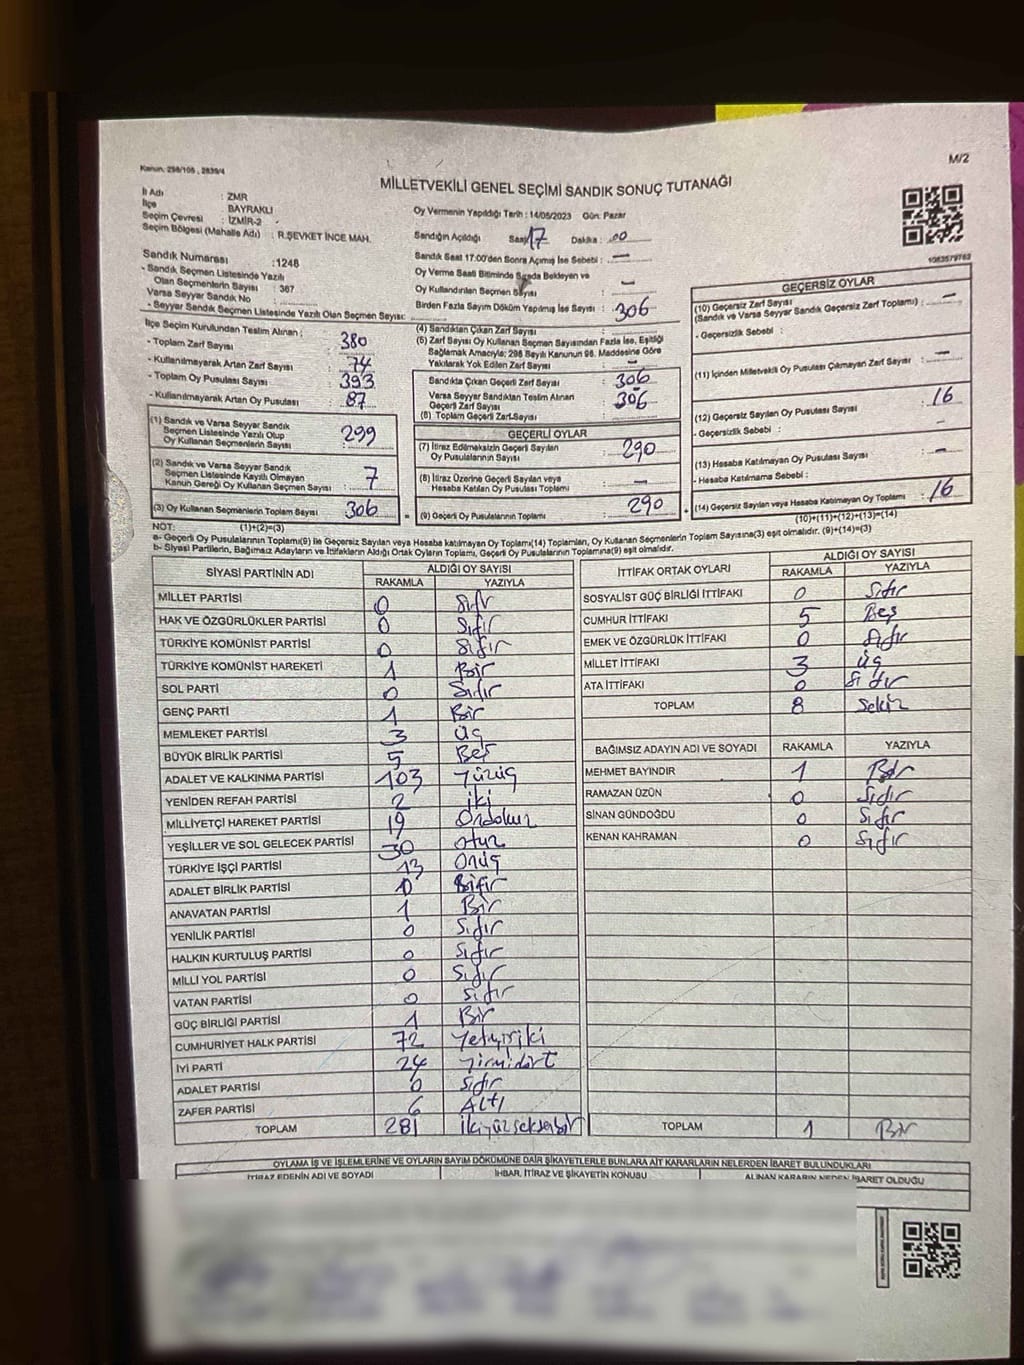 Kanun: 298/105, 2839/4
M/2
MİLLETVEKİLİ GENEL SEÇİMİ SANDIK SONUÇ TUTANAĞI
İl Adı : ZMR
İlçe : BAYRAKLI
Seçim Çevresi : İZMİR-2
Seçim Bölgesi (Mahalle Adı) : R.ŞEVKET İNCE MAH.
Sandık Numarası : 1248
- Sandık Seçmen Listesinde Yazılı
Olan Seçmenlerin Sayısı : 367
Varsa Seyyar Sandık No :
- Seyyar Sandık Seçmen Listesinde Yazılı Olan Seçmen Sayısı:
Oy Vermenin Yapıldığı Tarih : 14/05/2023 Gün: Pazar
Sandığın Açıldığı Saat 17 Dakika : 00
Sandık Saat 17:00'den Sonra Açımış İse Sebebi : —
Oy Verme Saati Bitiminde Sırada Bekleyen ve
Oy Kullandırılan Seçmen Sayısı : —
Birden Fazla Sayım Döküm Yapılmış İse Sayısı :
1083579762
İlçe Seçim Kurulundan Teslim Alınan ;
- Toplam Zarf Sayısı : 380
- Kullanılmayarak Artan Zarf Sayısı : 74
- Toplam Oy Pusulası Sayısı : 393
- Kullanılmayarak Artan Oy Pusulası : 87
(1) Sandık ve Varsa Seyyar Sandık
Seçmen Listesinde Yazılı Olup
Oy Kullanan Seçmenlerin Sayısı : 299
(2) Sandık ve Varsa Seyyar Sandık
Seçmen Listesinde Kayıtlı Olmayan
Kanun Gereği Oy Kullanan Seçmen Sayısı : 7
(3) Oy Kullanan Seçmenlerin Toplam Sayısı : 306
(4) Sandıktan Çıkan Zarf Sayısı : 306
(5) Zarf Sayısı Oy Kullanan Seçmen Sayısından Fazla İse, Eşitliği
Sağlamak Amacıyla; 298 Sayılı Kanunun 98. Maddesine Göre
Yakılarak Yok Edilen Zarf Sayısı : —
Sandıkta Çıkan Geçerli Zarf Sayısı : 306
Varsa Seyyar Sandıktan Teslim Alınan
Geçerli Zarf Sayısı : —
(6) Toplam Geçerli Zarf Sayısı : 306
GEÇERLİ OYLAR
(7) İtiraz Edilmeksizin Geçerli Sayılan
Oy Pusulalarının Sayısı : 290
(8) İtiraz Üzerine Geçerli Sayılan veya
Hesaba Katılan Oy Pusulası Toplamı : —
(9) Geçerli Oy Pusulalarının Toplamı : 290
GEÇERSİZ OYLAR
(10) Geçersiz Zarf Sayısı
(Sandık ve Varsa Seyyar Sandık Geçersiz Zarf Toplamı) : —
- Geçersizlik Sebebi :
(11) İçinden Milletvekili Oy Pusulası Çıkmayan Zarf Sayısı : —
(12) Geçersiz Sayılan Oy Pusulası Sayısı : 16
- Geçersizlik Sebebi : —
(13) Hesaba Katılmayan Oy Pusulası Sayısı : —
- Hesaba Katılmama Sebebi :
(14) Geçersiz Sayılan veya Hesaba Katılmayan Oy Toplamı : 16
NOT: (1)+(2)=(3) (10)+(11)+(12)+(13)=(14)
a- Geçerli Oy Pusulalarının Toplamı(9) ile Geçersiz Sayılan veya Hesaba katılmayan Oy Toplamı(14) Toplamları, Oy Kullanan Seçmenlerin Toplam Sayısına(3) eşit olmalıdır. (9)+(14)=(3)
b- Siyasi Partilerin, Bağımsız Adayların ve İttifakların Aldığı Ortak Oyların Toplamı, Geçerli Oy Pusulalarının Toplamına(9) eşit olmalıdır.
SİYASİ PARTİNİN ADI ALDIĞI OY SAYISI
RAKAMLA YAZIYLA
MİLLET PARTİSİ 0 Sıfır
HAK VE ÖZGÜRLÜKLER PARTİSİ 0 Sıfır
TÜRKİYE KOMÜNİST PARTİSİ 0 Sıfır
TÜRKİYE KOMÜNİST HAREKETİ 1 Bir
SOL PARTİ 0 Sıfır
GENÇ PARTİ 1 Bir
MEMLEKET PARTİSİ 3 Üç
BÜYÜK BİRLİK PARTİSİ 5 Beş
ADALET VE KALKINMA PARTİSİ 103 Yüzüç
YENİDEN REFAH PARTİSİ 2 iki
MİLLİYETÇİ HAREKET PARTİSİ 19 Ondokuz
YEŞİLLER VE SOL GELECEK PARTİSİ 30 otuz
TÜRKİYE İŞÇİ PARTİSİ 13 Onüç
ADALET BİRLİK PARTİSİ 0
ANAVATAN PARTİSİ 1 Bir
YENİLİK PARTİSİ 0 Sıfır
HALKIN KURTULUŞ PARTİSİ 0 Sıfır
MİLLİ YOL PARTİSİ 0 Sıfır
VATAN PARTİSİ 0 Sıfır
GÜÇ BİRLİĞİ PARTİSİ 1 Bir
CUMHURİYET HALK PARTİSİ 72 Yetmişiki
İYİ PARTİ 24 Yirmidört
ADALET PARTİSİ 0 Sıfır
ZAFER PARTİSİ 6 Altı
TOPLAM 281 ikiyüzseksenbir
İTTİFAK ORTAK OYLARI ALDIĞI OY SAYISI
RAKAMLA YAZIYLA
SOSYALİST GÜÇ BİRLİĞİ İTTİFAKI 0 Sıfır
CUMHUR İTTİFAKI 5 Beş
EMEK VE ÖZGÜRLÜK İTTİFAKI 0 Sıfır
MİLLET İTTİFAKI 3 üç
ATA İTTİFAKI 0 Sıfır
TOPLAM 8 Sekiz
BAĞIMSIZ ADAYIN ADI VE SOYADI RAKAMLA YAZIYLA
MEHMET BAYINDIR 1 Bir
RAMAZAN ÜZÜN 0 Sıfır
SİNAN GÜNDOĞDU 0 Sıfır
KENAN KAHRAMAN 0 Sıfır
TOPLAM 1 Bir
OYLAMA İŞ VE İŞLEMLERİNE VE OYLARIN SAYIM DÖKÜMÜNE DAİR ŞİKAYETLERLE BUNLARA AİT KARARLARIN NELERDEN İBARET BULUNDUKLARI
İTİRAZ EDENİN ADI VE SOYADI İHBAR, İTİRAZ VE ŞİKAYETİN KONUSU ALINAN KARARIN NEDEN İBARET OLDUĞU